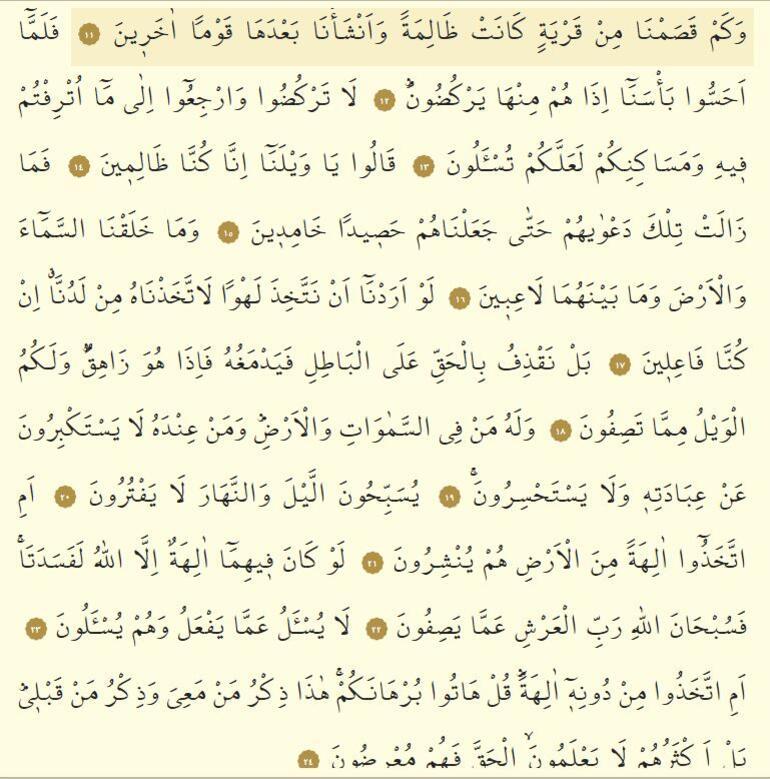 وَكَمْ قَصَمْنَا مِنْ قَرْيَةٍ كَانَتْ ظَالِمَةً وَاَنْشَأْنَا بَعْدَهَا قَوْمًا اٰخَر۪ينَ ١١ فَلَمَّٓا
اَحَسُّوا بَأْسَنَٓا اِذَا هُمْ مِنْهَا يَرْكُضُونَۜ ١٢ لَا تَرْكُضُوا وَارْجِعُٓوا اِلٰى مَٓا اُتْرِفْتُمْ
ف۪يهِ وَمَسَاكِنِكُمْ لَعَلَّكُمْ تُسْـَٔلُونَ ١٣ قَالُوا يَا وَيْلَنَٓا اِنَّا كُنَّا ظَالِم۪ينَ ١٤ فَمَا
زَالَتْ تِلْكَ دَعْوٰيهُمْ حَتّٰى جَعَلْنَاهُمْ حَص۪يدًا خَامِد۪ينَ ١٥ وَمَا خَلَقْنَا السَّمَٓاءَ
وَالْاَرْضَ وَمَا بَيْنَهُمَا لَاعِب۪ينَ ١٦ لَوْ اَرَدْنَٓا اَنْ نَتَّخِذَ لَهْوًا لَاتَّخَذْنَاهُ مِنْ لَدُنَّاۗ اِنْ
كُنَّا فَاعِل۪ينَ ١٧ بَلْ نَقْذِفُ بِالْحَقِّ عَلَى الْبَاطِلِ فَيَدْمَغُهُ فَاِذَا هُوَ زَاهِقٌۜ وَلَكُمُ
الْوَيْلُ مِمَّا تَصِفُونَ ١٨ وَلَهُ مَنْ فِي السَّمٰوَاتِ وَالْاَرْضِۜ وَمَنْ عِنْدَهُ لَا يَسْتَكْبِرُونَ
عَنْ عِبَادَتِه۪ وَلَا يَسْتَحْسِرُونَۚ ١٩ يُسَبِّحُونَ الَّيْلَ وَالنَّهَارَ لَا يَفْتُرُونَ ٢٠ اَمِ
اتَّخَذُٓوا اٰلِهَةً مِنَ الْاَرْضِ هُمْ يُنْشِرُونَ ٢١ لَوْ كَانَ ف۪يهِمَٓا اٰلِهَةٌ اِلَّا اللّٰهُ لَفَسَدَتَاۚ
فَسُبْحَانَ اللّٰهِ رَبِّ الْعَرْشِ عَمَّا يَصِفُونَ ٢٢ لَا يُسْـَٔلُ عَمَّا يَفْعَلُ وَهُمْ يُسْـَٔلُونَ ٢٣
اَمِ اتَّخَذُوا مِنْ دُونِه۪ٓ اٰلِهَةًۜ قُلْ هَاتُوا بُرْهَانَكُمْۚ هٰذَا ذِكْرُ مَنْ مَعِيَ وَذِكْرُ مَنْ قَبْل۪يۜ
بَلْ اَكْثَرُهُمْ لَا يَعْلَمُونَۙ الْحَقَّ فَهُمْ مُعْرِضُونَ ٢٤